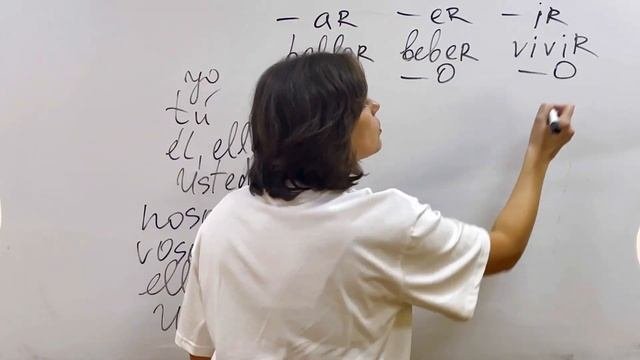 - aR - eR - iR
beber viviR
yo - O - O
tú
él, ell
Usted
nos
vos
ell
U